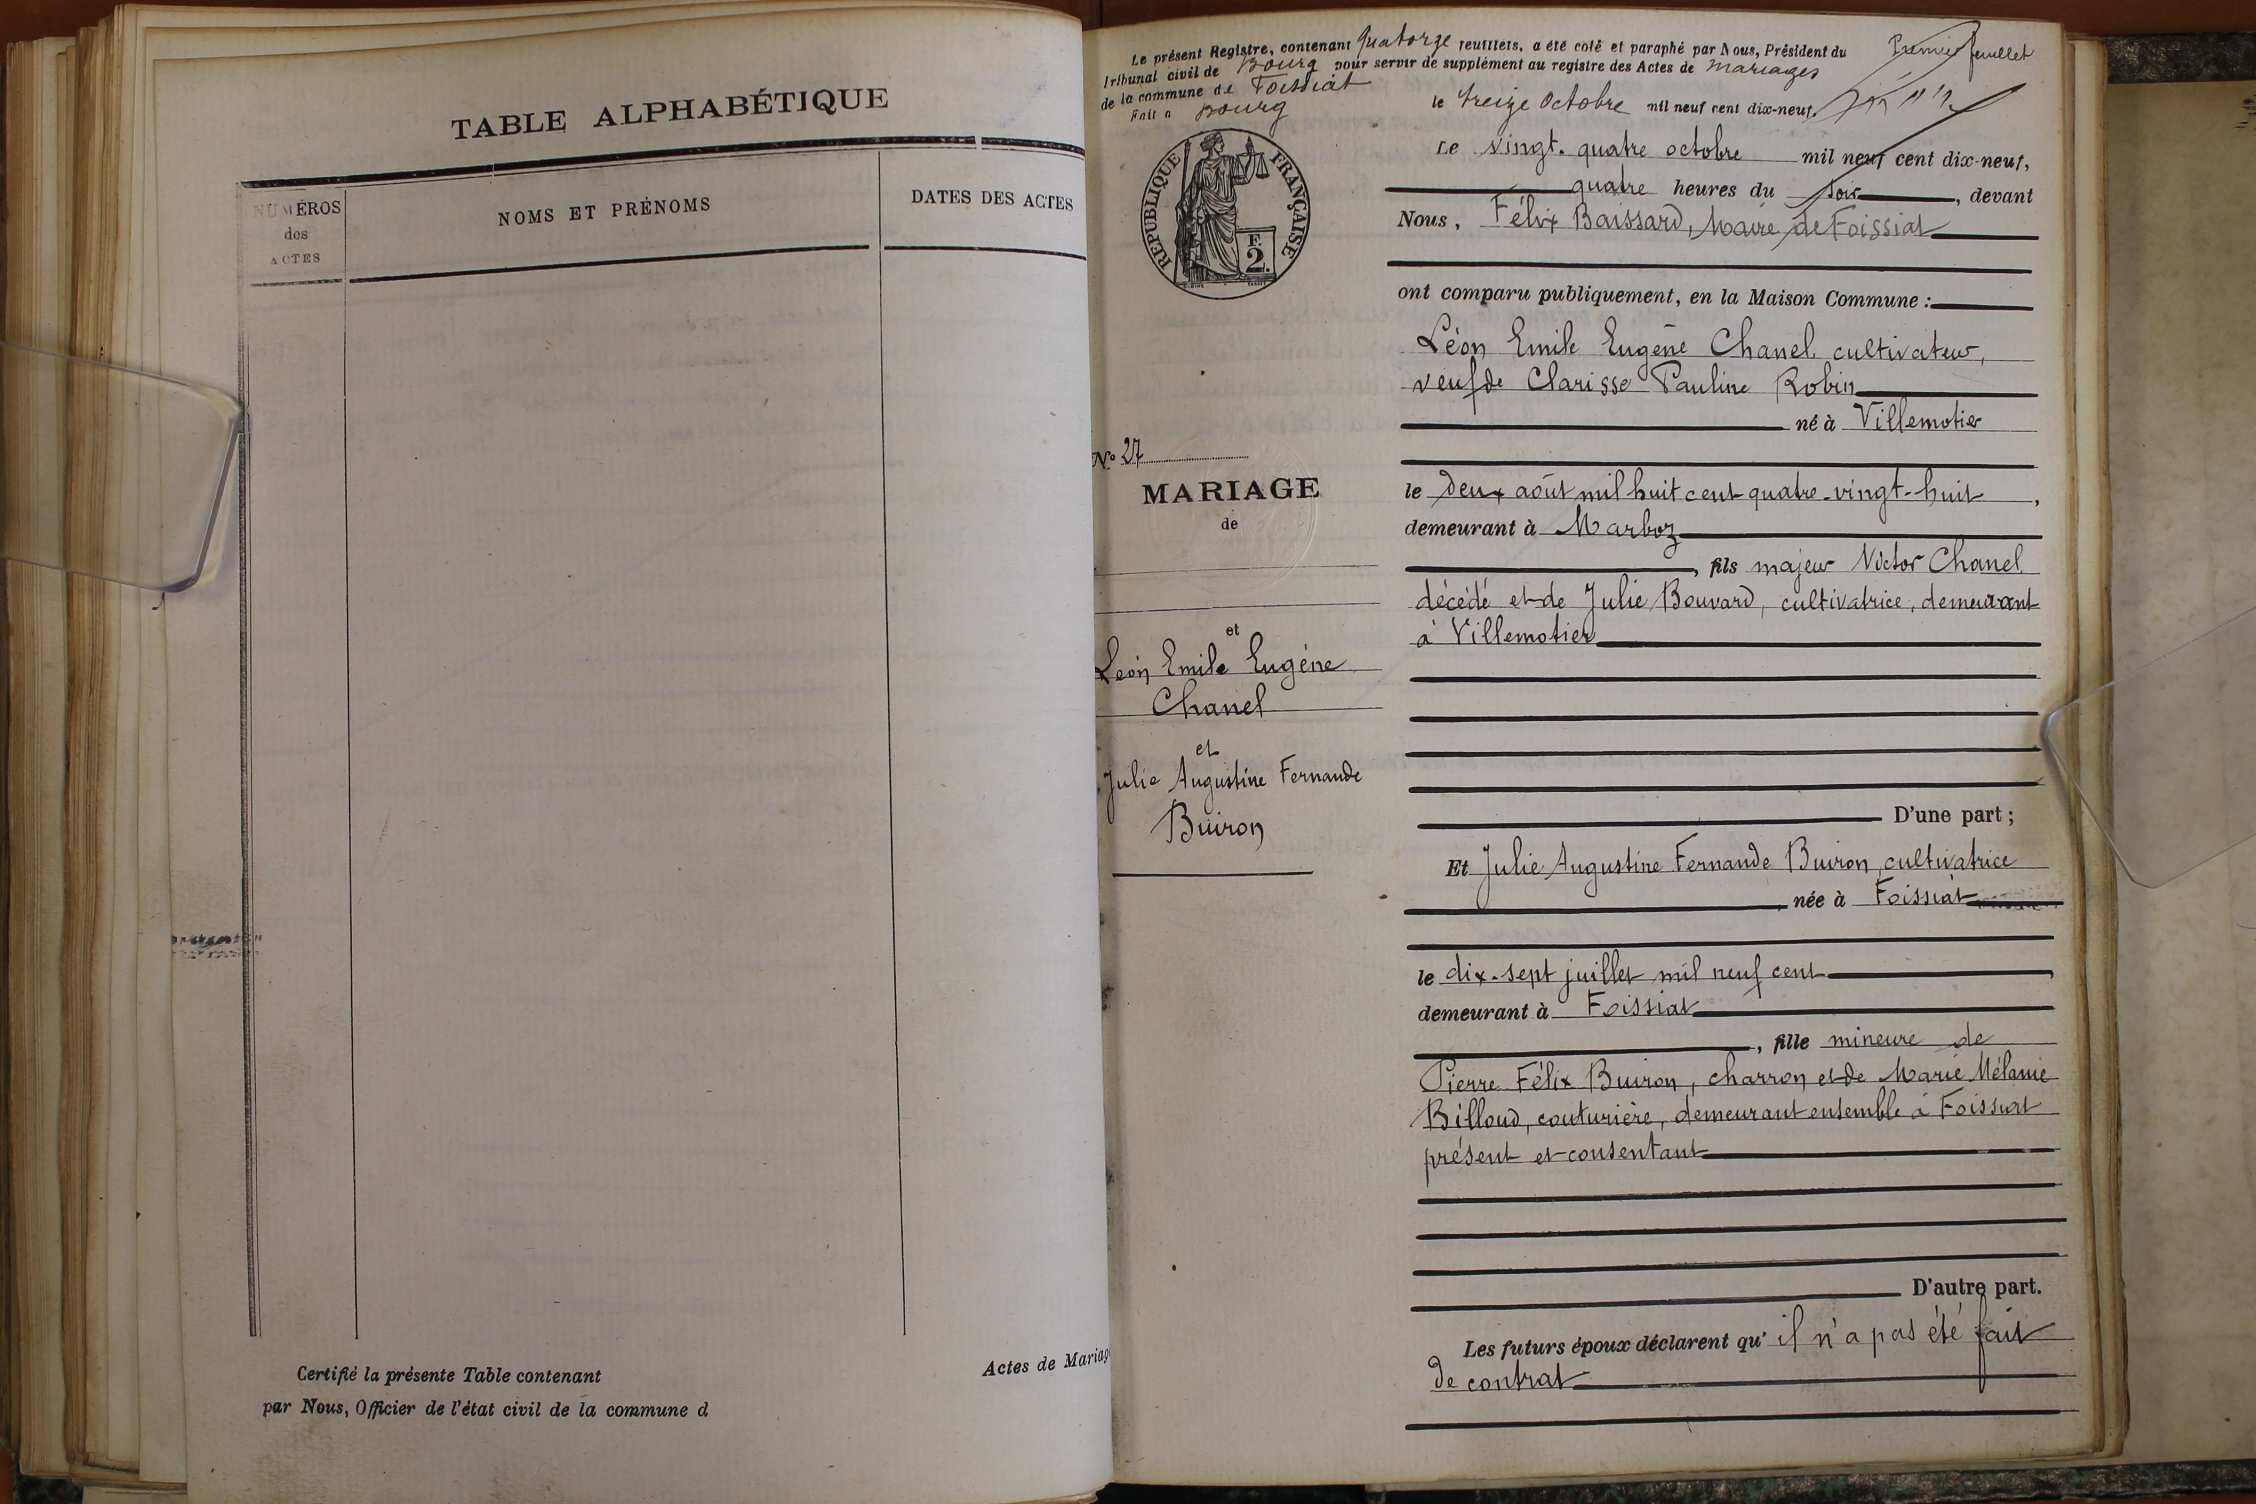 TABLE ALPHABÉTIQUE
NUMÉROS
des
ACTES
NOMS ET PRÉNOMS
DATES DES ACTES
Certifié la présente Table contenant
Actes de Mariag
par Nous, Officier de l'état civil de la commune d
Premier feuillet
Le présent Registre, contenant quatorze feuillets, a été coté et paraphé par Nous, Président du
Tribunal civil de Bourg pour servir de supplément au registre des Actes de mariages
de la commune de Foissiat
Fait à Bourg le treize Octobre mil neuf cent dix-neuf.
RÉPUBLIQUE FRANÇAISE
F.
2.
Le vingt-quatre octobre mil neuf cent dix-neuf,
quatre heures du soir, devant
Nous, Félix Baissard, Maire de Foissiat
ont comparu publiquement, en la Maison Commune :
Léon Emile Eugène Chanel cultivateur,
veuf de Clarisse Pauline Robin
né à Villemotier
le deux août mil huit cent quatre-vingt-huit,
demeurant à Marboz
, fils majeur Victor Chanel
décédé et de Julie Bouvard, cultivatrice, demeurant
à Villemotier
D'une part ;
Et Julie Augustine Fernande Buiron, cultivatrice
née à Foissiat
le dix-sept juillet mil neuf cent,
demeurant à Foissiat
, fille mineure de
Pierre Félix Buiron, charron et de Marie Mélanie
Billoud, couturière, demeurant ensemble à Foissiat
présent et consentant
D'autre part.
Les futurs époux déclarent qu' il n'a pas été fait
de contrat
N° 27
MARIAGE
de
et
Léon Emile Eugène
Chanel
et
Julie Augustine Fernande
Buiron